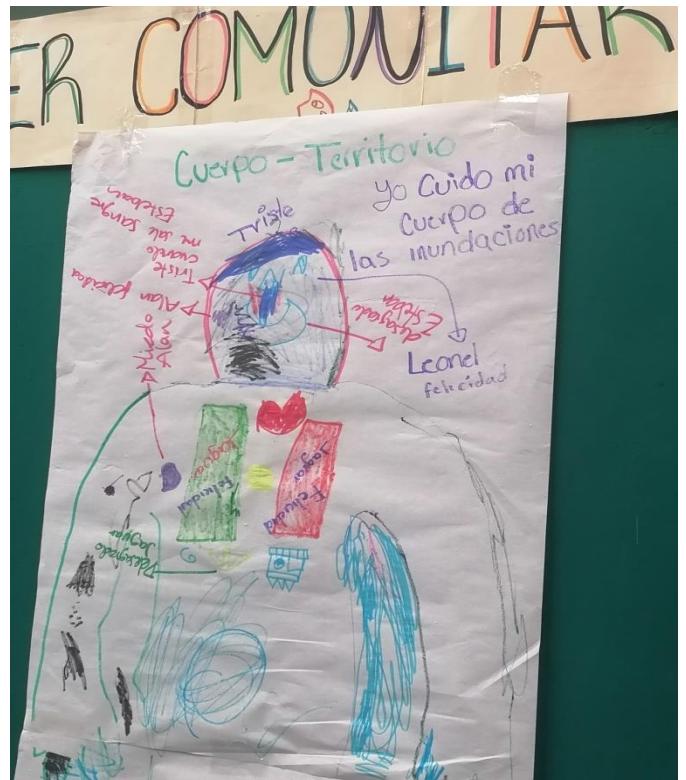 ER COMUNITAR
Cuerpo - Territorio
Yo Cuido mi
Cuerpo de
las inundaciones
Triste
Triste
cuando
me sale sangre
Esteban
Alan felicidad
Miedo
Alan
desagrado
Esteban
Leonel
felicidad
Jaguar
felicidad
Jaguar
Felicidad
desagrado
Jaguar